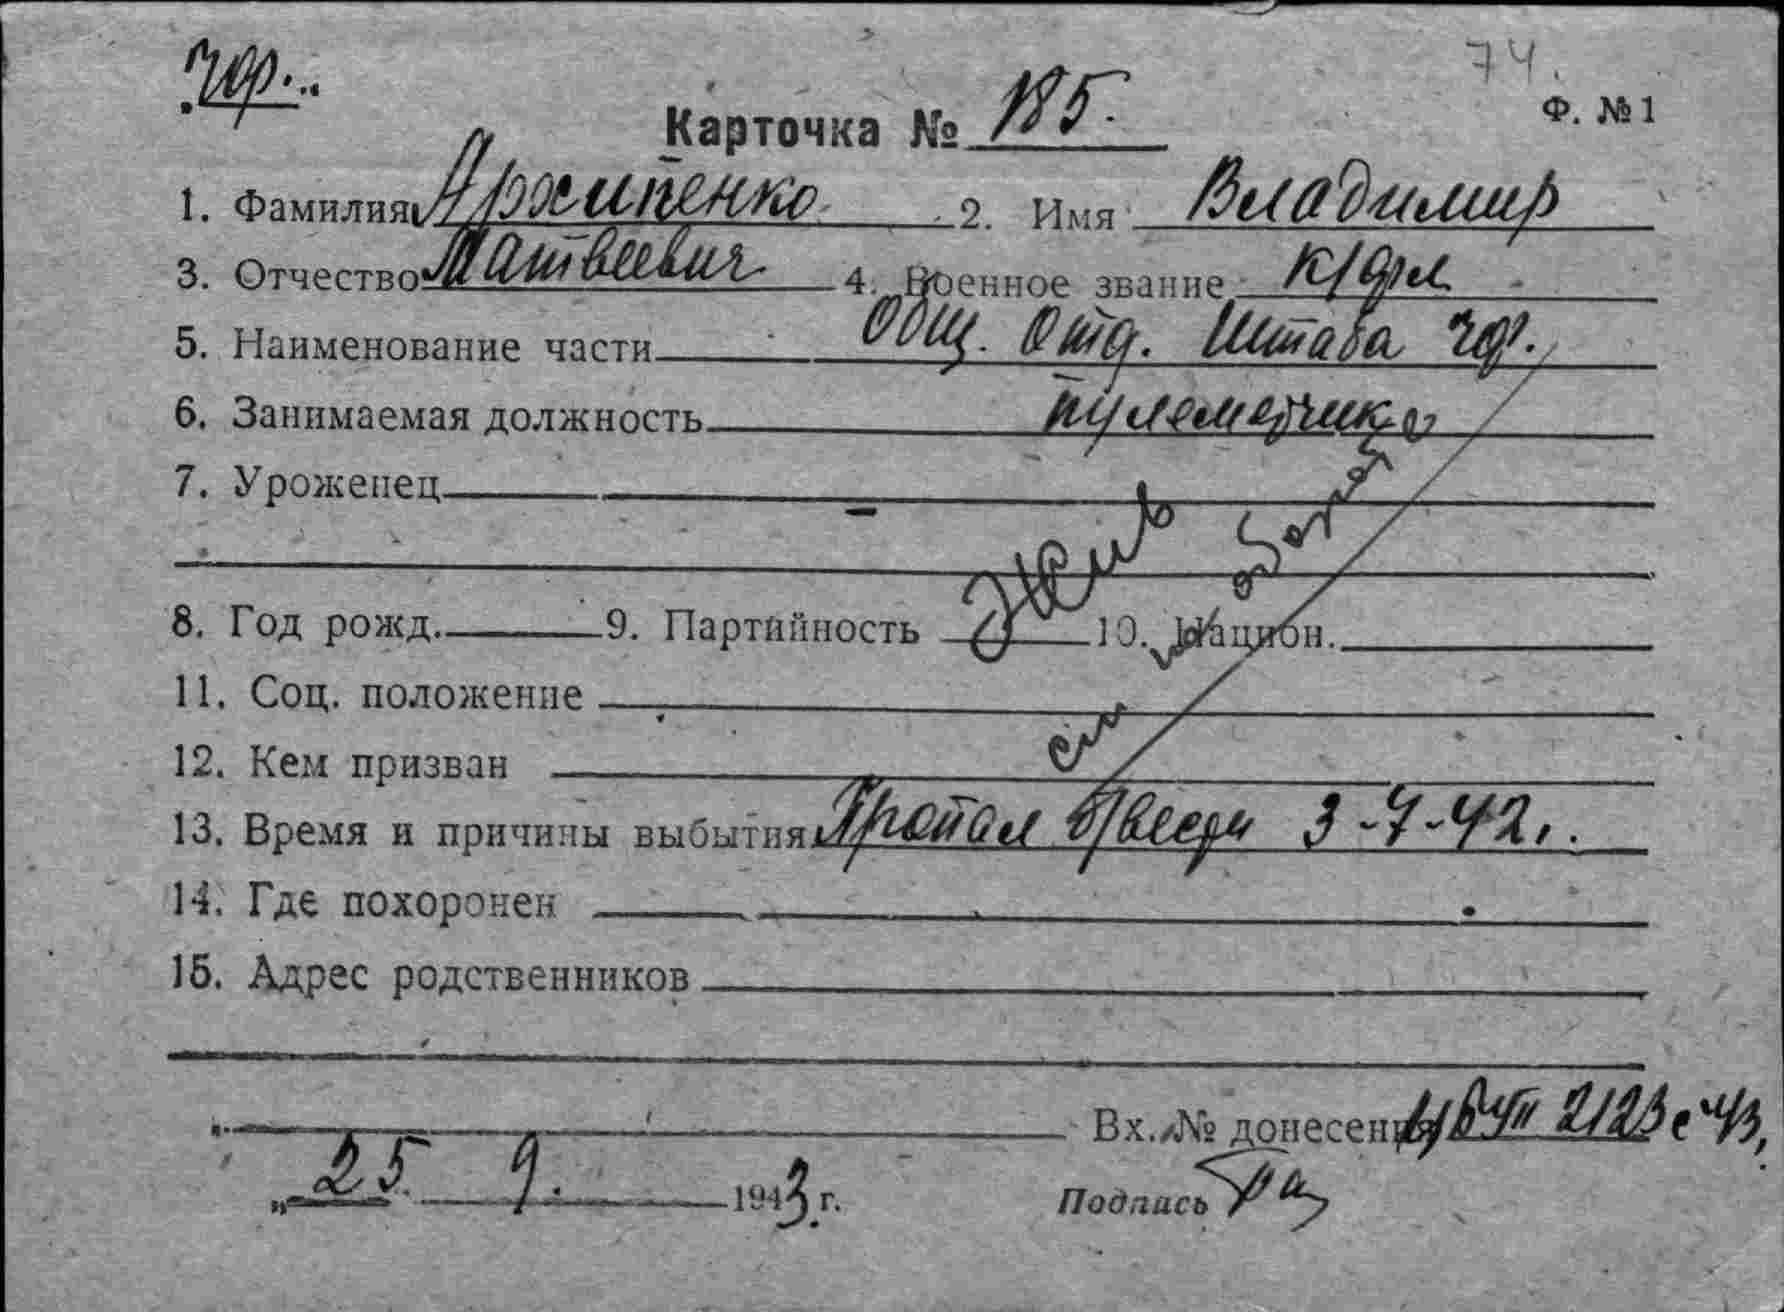 74.
чф.
Ф. №1
Карточка № 185.
1. Фамилия Архипенко 2. Имя Владимир
3. Отчество Матвеевич 4. Военное звание к/фл
5. Наименование части Общ. Отд. Штаба чф.
6. Занимаемая должность пулеметчик
7. Уроженец
Жив
8. Год рожд. 9. Партийность 10. Национ.
11. Соц. положение
см
12. Кем призван
13. Время и причины выбытия Пропал б/вести 3-7-42г.
14. Где похоронен
15. Адрес родственников
Вх. № донесения 2123с 43,
„25. 9. 1943 г.
Подпись